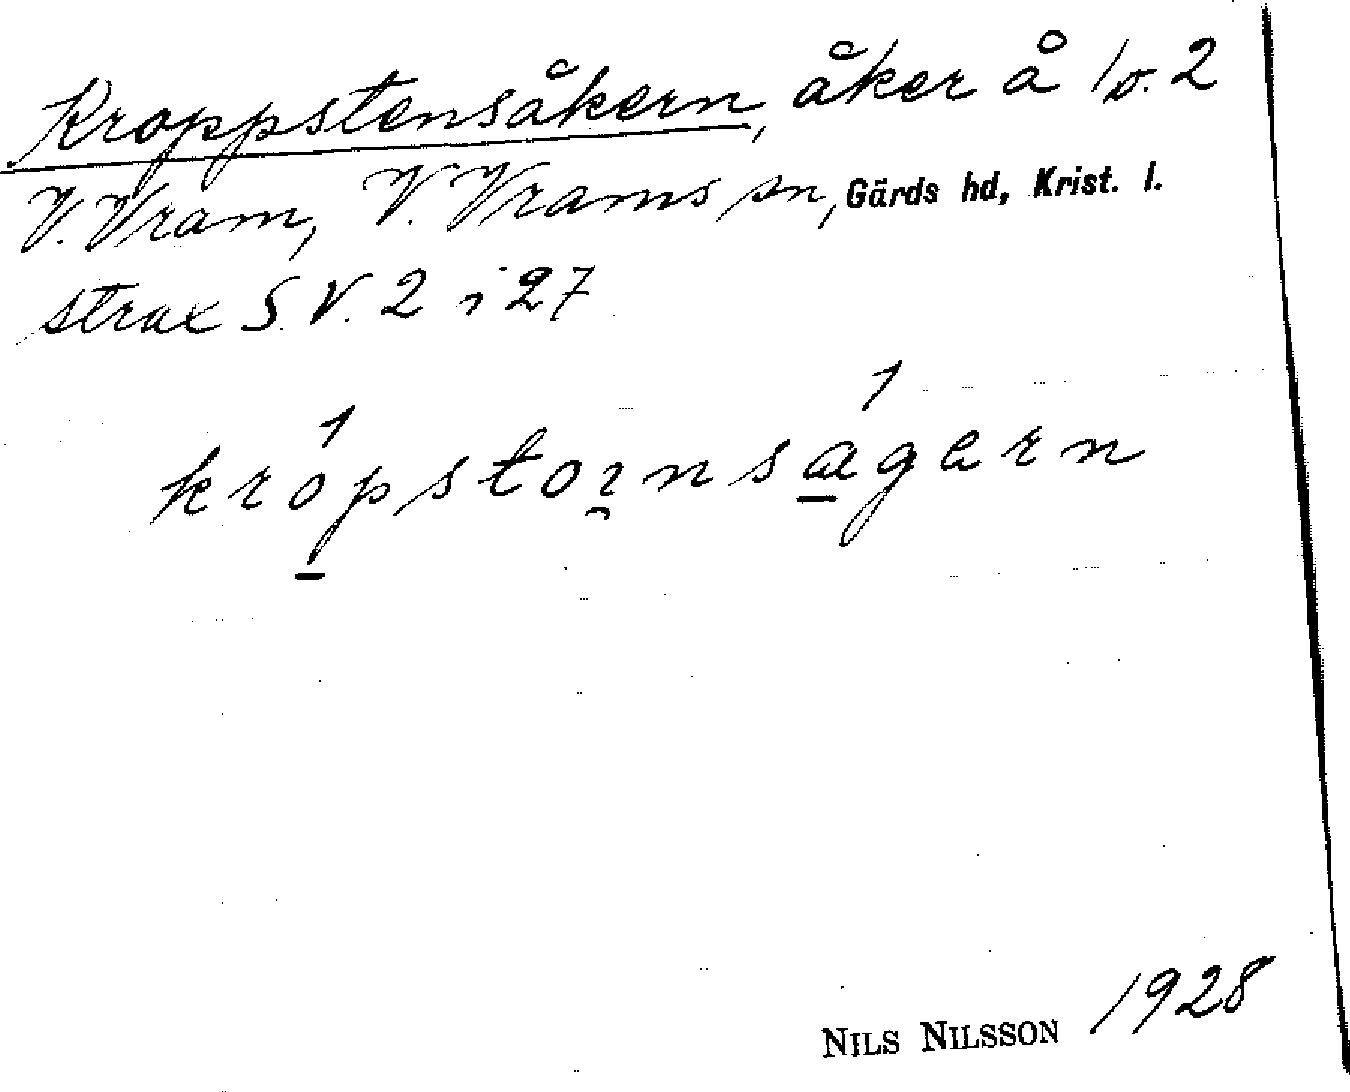 Kroppstensåkern, åker å 1 o. 2
V. Vram, V. Vrams sn, Gärds hd, Krist. l.
strax S.V. 2 i 27
kropstoi̯nsagern
NILS NILSSON 1928